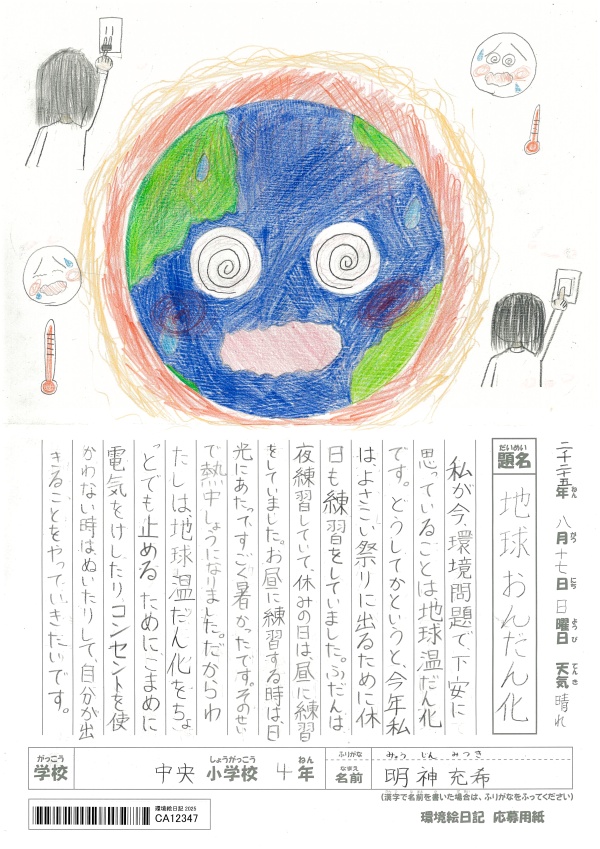 二千二五年 八月十七日 日曜日 天気 晴れ
ねん がつ にち ようび てんき
だいめい
題名
地球おんだん化
私が今、環境問題で、下安に
思っていることは、地球温だん化
です。どうしてかというと、今年私
は、よさこい祭りに出るために休
日も練習をしていました。ふだんは
夜練習していて、休みの日は、昼に練習
をしていました。お昼に練習する時は、日
光にあたってすごく暑かったです。そのせい
で熱中しょうになりました。だからわ
たしは、地球温だん化をちょ
っとでも止めるためにこまめに
電気をけしたり、コンセントを使
かわない時はぬいたりして、自分が出
きることをやっていきたいです。
がっこう しょうがっこう ねん
学校 中央 小学校 4年
ふりがな みょうじん みつき
なまえ
名前 明神充希
(漢字で名前を書いた場合は、ふりがなをふってください)
環境絵日記 2025
CA12347
環境絵日記 応募用紙